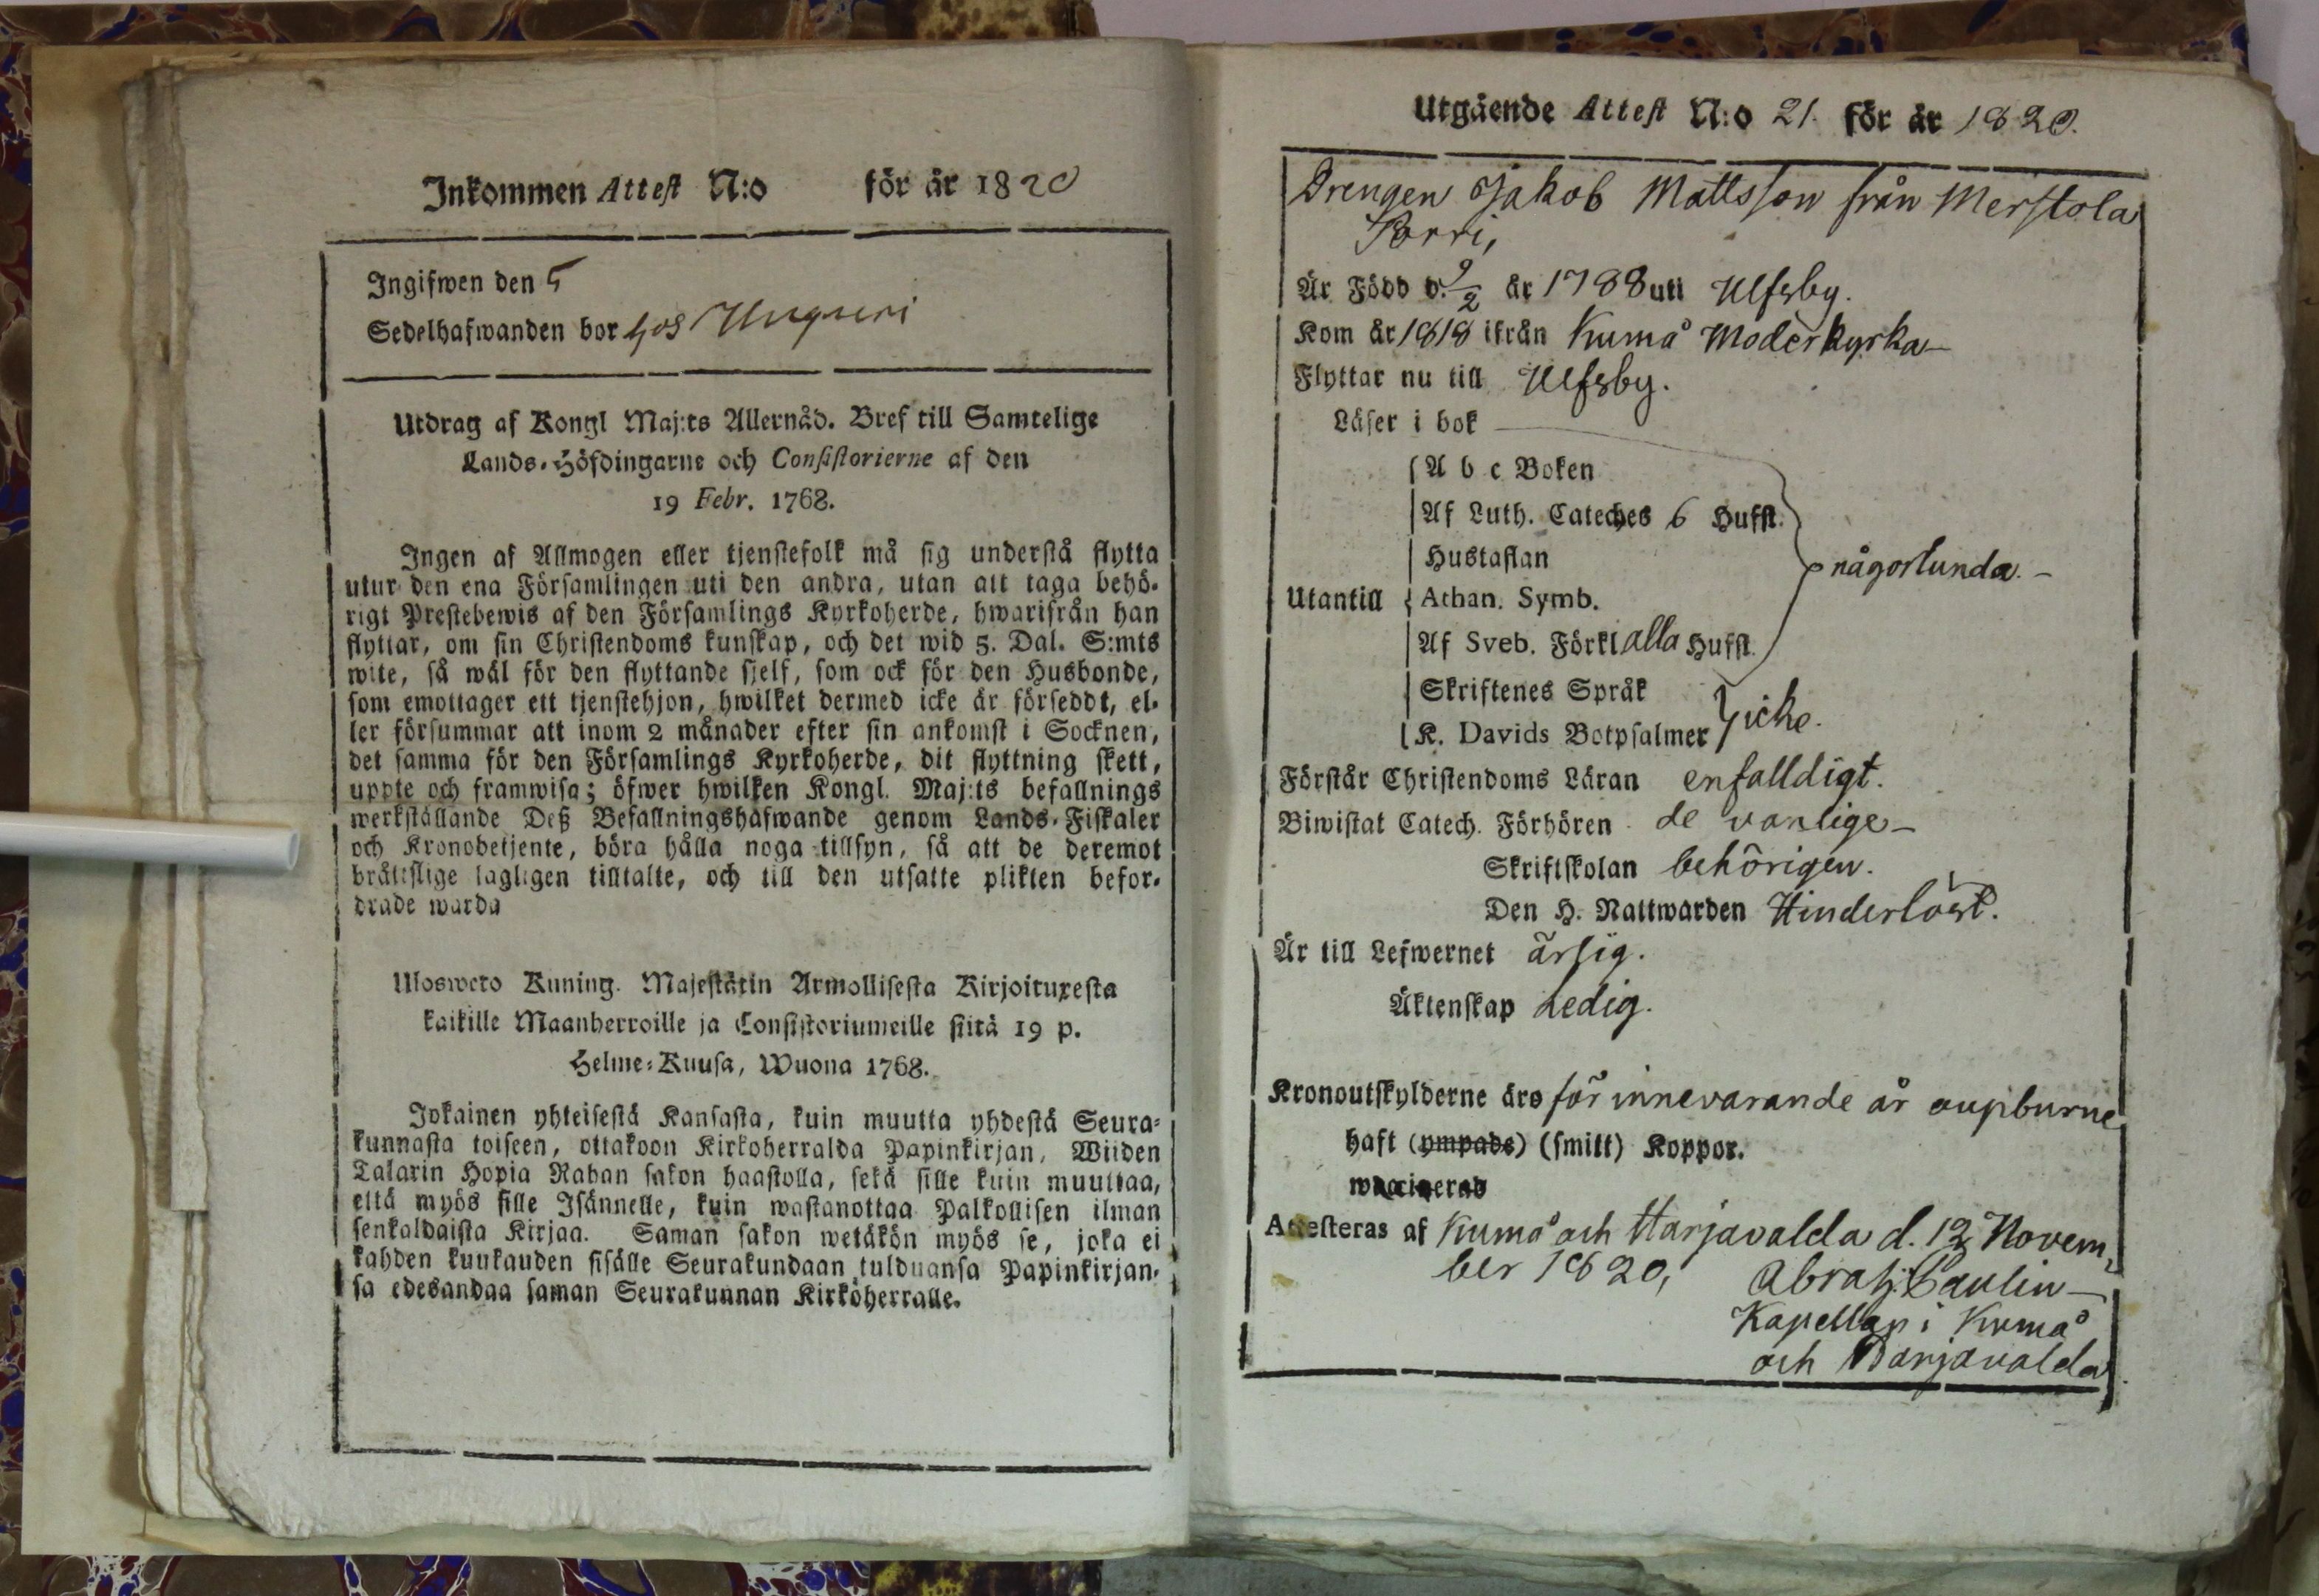 Inkommen Attest N:o för år 1820
Ingifwen den 5
Sedelhafwanden bor hos Ungneri
Utdrag af Kongl Maj:ts Allernåd. Bref till Samtelige
Lands-Höfdingarne och Consistorierne af den
19 Febr. 1768.
Ingen af Allmogen eller tjenstefolk må sig understå flytta
utur den ena Församlingen uti den andra, utan att taga behö-
rigt Prestebewis af den Församlings Kyrkoherde, hwarifrån han
flyttar, om sin Christendoms kunskap, och det wid 5. Dal. S:mts
wite, så wäl för den flyttande sjelf, som ock för den Husbonde,
som emottager ett tjenstehjon, hwilket dermed icke är förseddt, el-
ler försummar att inom 2 månader efter sin ankomst i Socknen,
det samma för den Församlings Kyrkoherde, dit flyttning skett,
uppte och framwisa; öfwer hwilken Kongl. Maj:ts befallnings
werkställande Deß Befallningshafwande genom Lands-Fiskaler
och Kronobetjente, böra hålla noga tillsyn, så att de deremot
bråttslige lagligen tilltalte, och till den utsatte plikten befor-
drade warda
Ulosweto Kuning. Majestätin Armollisesta Kirjoituxesta
kaikille Maanherroille ja Consistoriumeille siitä 19 p.
Helme-Kuusa, Wuona 1768.
Jokainen yhteisestä Kansasta, kuin muutta yhdestä Seura-
kunnasta toiseen, ottakoon Kirkoherralda Papinkirjan, Wiiden
Talarin Hopia Rahan sakon haastolla, sekä sille kuin muuttaa,
että myös sille Isännelle, kuin wastanottaa Palkollisen ilman
senkaldaista Kirjaa. Saman sakon wetäkön myös se, joka ei
kahden kuukauden sisälle Seurakundaan tulduansa Papinkirjan-
sa edesandaa saman Seurakunnan Kirköherralle.
Utgående Attest N:o 21. för år 1820.
Drengen Jakob Mattsson från Merstola
Porri,
Är Född d. 9/2 år 1788 uti Ulfsby.
Kom år 1818 ifrån Kumå Moderkyrka
Flyttar nu till Ulfsby.
Läser i bok
A b c Boken
Af Luth. Cateches 6 Hufst.
Hustaflan någorlunda.
Utantill Athan. Symb.
Af Sveb. Förkl alla Hufst.
Skriftenes Språk
K. Davids Botpsalmer icke.
Förstår Christendoms Läran enfalldigt.
Biwistat Catech. Förhören de vanlige
Skriftskolan behörigen.
Den H. Nattwarden Hinderlöst.
Är till Lefwernet ärlig.
Äktenskap Ledig.
Kronoutskylderne äro för innevarande år oupburne
haft (ympade) (smitt) Koppor.
waccinerad
Attesteras af Kumå och Harjavalda d. 12 Novem-
ber 1820, Abrah. Paulin
Kapellan i Kumå
och Harjavalda